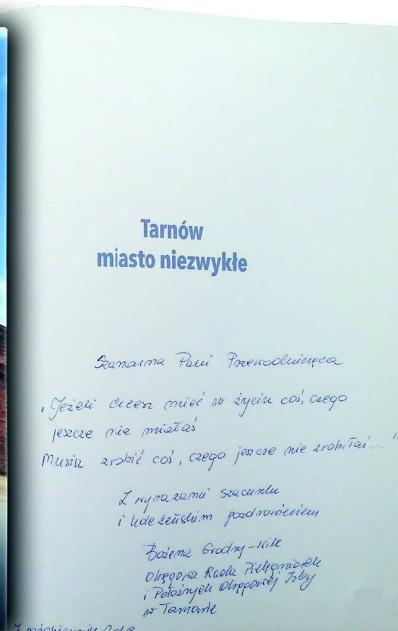 Tarnów
miasto niezwykłe
Szanowna Pani Przewodnicząca
„Jeżeli chcesz mieć w życiu coś, czego
jeszcze nie miałaś
Musisz zrobić coś, czego jeszcze nie zrobiłaś..."
Z wyrazami szacunku
i koleżeńskim pozdrowieniem
Bożena
Okręgowa Rada Pielęgniarek
i Położnych Okręgowej Izby
w Tarnowie